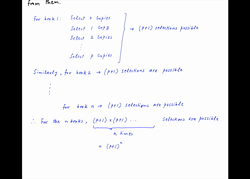 from them.
For book 1: Select 0 copies
Select 1 copy
Select 2 copies
⋮
Select p copies
→ (p+1) selections possible
Similarly, for book 2 → (p+1) selections are possible
⋮
for book n → (p+1) selections are possible
∴ For the n books, (p+1) × (p+1) ... selections are possible
n times
= (p+1)ⁿ